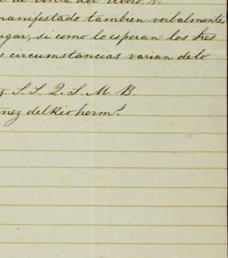 manifestado tambien verbalmente
ugar, si como lo esperan los tres
s circumstancias varian de lo
S. S. Q. S. M. B.
ñez del Rio herm.s